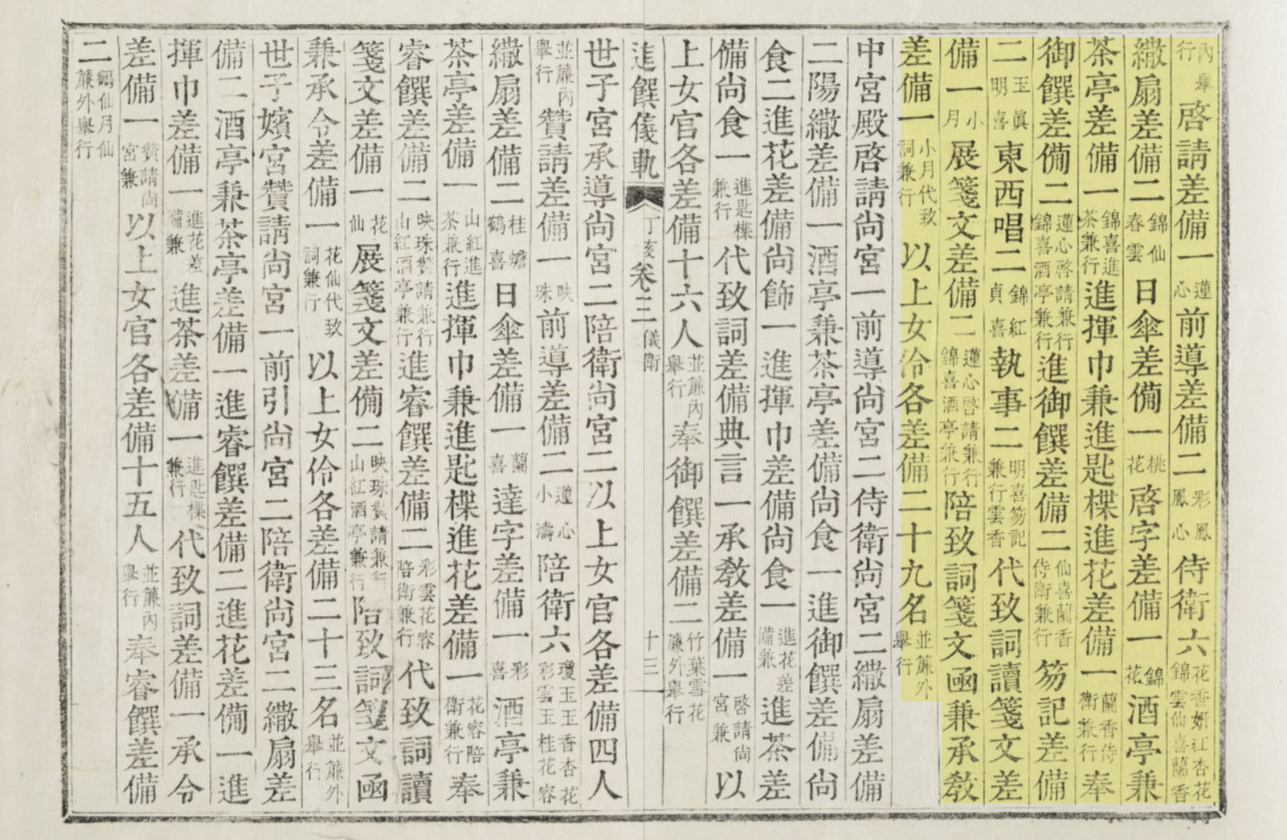 內擧行啓請差備一蓮心前導差備二彩鳳鳳心侍衛六花香妍紅杏花錦雲仙喜蘭香
繖扇差備二錦仙春雲日傘差備一桃花啓字差備一錦花酒亭兼
茶亭差備一錦喜進茶兼行進揮巾兼進匙楪進花差備一蘭香侍衛兼行奉
御饌差備二蓮心啓請兼行錦喜酒亭兼行進御饌差備二仙喜蘭香侍衛兼行笏記差備
二玉眞明喜東西唱二錦紅貞喜執事二明喜笏記兼行雲香代致詞讀箋文差
備一小月展箋文差備二蓮心啓請兼行錦喜酒亭兼行陪致詞箋文函兼承敎
差備一小月代致詞兼行以上女伶各差備二十九名並簾外擧行
中宮殿啓請尚宮一前導尚宮二侍衛尚宮二繖扇差備
二陽繖差備一酒亭兼茶亭差備尚食一進御饌差備尚
食二進花差備尚飾一進揮巾差備尚食一進花差備兼進茶差
備尚食一進匙楪兼行代致詞差備典言一承敎差備一啓請尚宮兼以
上女官各差備十六人並簾內擧行奉御饌差備二竹葉雪花簾外擧行
進饌儀軌 丁亥 卷二 儀衛 十三
世子宮承導尚宮二陪衛尚宮二以上女官各差備四人
並簾內擧行贊請差備一映珠前導差備二蓮心小濤陪衛六瓊玉玉香杏花彩雲玉桂花容
繖扇差備二桂蟾鶴喜日傘差備一蘭喜達字差備一彩喜酒亭兼
茶亭差備一山紅進茶兼行進揮巾兼進匙楪進花差備一花容陪衛兼行奉
睿饌差備二映珠贊請兼行山紅酒亭兼行進睿饌差備二彩雲花容陪衛兼行代致詞讀
箋文差備一花仙展箋文差備二映珠贊請兼行山紅酒亭兼行陪致詞箋文函
兼承令差備一花仙代致詞兼行以上女伶各差備二十三名並簾外擧行
世子嬪宮贊請尚宮一前引尚宮二陪衛尚宮二繖扇差
備二酒亭兼茶亭差備一進睿饌差備二進花差備一進
揮巾差備一進花差備兼進茶差備一進匙楪兼行代致詞差備一承令
差備一贊請尚宮兼以上女官各差備十五人並簾內擧行奉睿饌差備
二鶴仙月仙簾外擧行